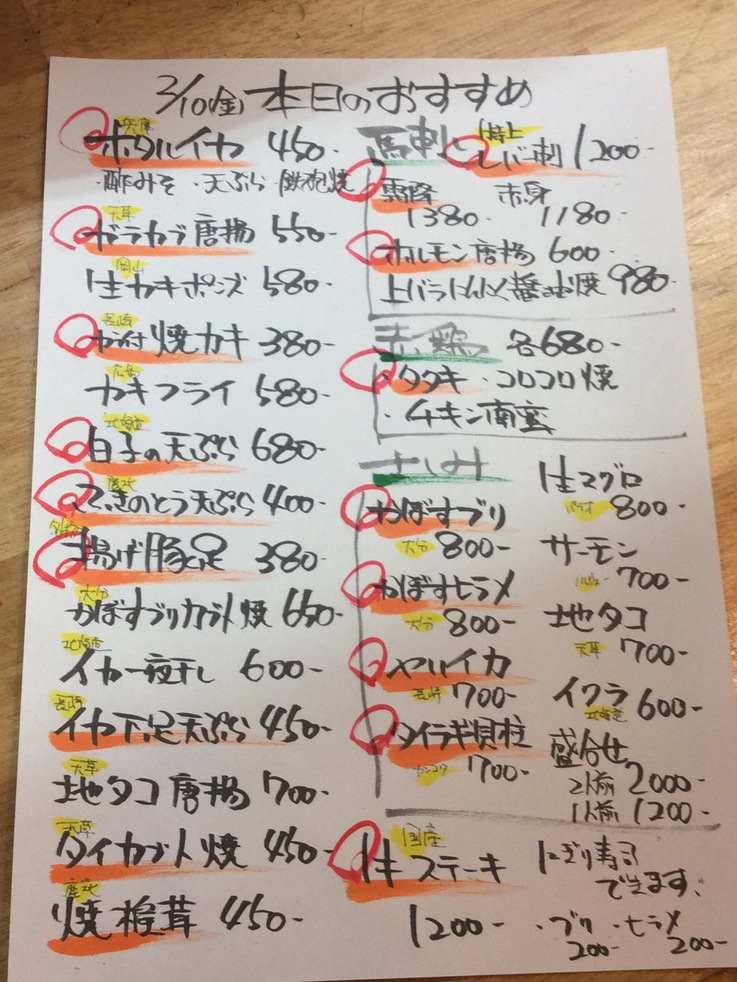 3/10(金)本日のおすすめ
兵庫
ホタルイカ 450-
・酢みそ ・天ぷら ・鉄砲焼
天草
ガラカブ唐揚 550-
岡山
生カキポンズ 580-
長崎
カラ付焼カキ 380-
広島
カキフライ 580-
北海道
白子の天ぷら 680-
ふきのとう天ぷら 400-
揚げ豚足 380-
大分
かぼすブリカブト焼 650-
北海道
イカ一夜干し 600-
長崎
イカ下足天ぷら 450-
天草
地タコ唐揚 700-
天草
タイカブト焼 450-
鹿北
焼椎茸 450-
馬刺し
特上
レバー刺 1200-
霜降 赤身
1380- 1180-
ホルモン唐揚 600-
上バラにんにく醤油焼 980-
赤鶏 各680-
・タタキ ・コロコロ焼
・チキン南蛮
さしみ
かぼすブリ
大分 800-
かぼすヒラメ
大分 800-
ヤリイカ
長崎 700-
タイラギ貝柱
700-
生マグロ
800-
サーモン
700-
地タコ
天草 700-
イクラ
北海道 600-
盛合せ
2人前 2000-
1人前 1200-
国産
牛ステーキ
1200-
にぎり寿司
できます、
・ブリ ・ヒラメ
200- 200-